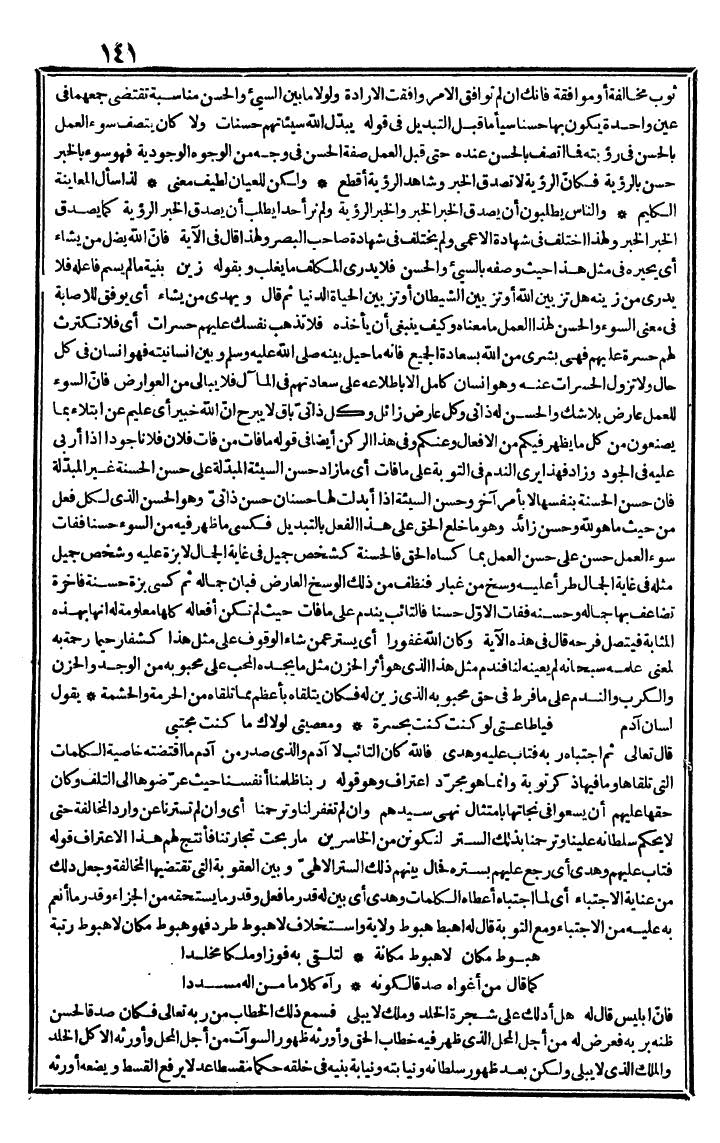 ١٤١
ثوب مخالفة أو موافقة فانك ان لم توافق الامر وافقت الارادة ولولا ما بين السيئ والحسن مناسبة تقتضى جمعهما فى
عين واحدة يكون بها حسنا سيأ ما قبل التبديل فى قوله يبدّل الله سيئاتهم حسنات ولا كان يتصف سوء العمل
بالحسن فى رؤيته فما اتصف بالحسن عنده حتى قبل العمل صفة الحسن فى وجه من الوجوه الوجودية فهو سوء بالخبر
حسن بالرؤية فكأنّ الرؤية لا تصدق الخبر وشاهد الرؤية أقطع * ولكن للعيان لطيف معنى * لذا سأل المعاينة
الكليم * والناس يطلبون أن يصدق الخبر الخبر والخبر الرؤية ولم نر أحدا يطلب أن يصدق الخبر الرؤية كما يصدق
الخبر الخبر ولهذا اختلف فى شهادة الاعمى ولم يختلف فى شهادة صاحب البصر ولهذا قال فى الآية فانّ الله يضل من يشاء
أى يحيره فى مثل هذا حيث وصفه بالسيئ والحسن فلا يدرى المكلف ما يغلب وبقوله زين بنية مالم يسم فاعله فلا
يدرى من زينه هل تزيين الله أو تزيين الشيطان أو تزيين الحياة الدنيا ثم قال ويهدى من يشاء أى يوفق للاصابة
فى معنى السوء والحسن لهذا العمل ما معناه وكيف ينبغى أن يأخذه فلا تذهب نفسك عليهم حسرات أى فلا تكترث
لهم حسرة عليهم فهى بشرى من الله بسعادة الجميع فانه ما حيل بينه صلى الله عليه وسلم وبين انسانيته فهو انسان فى كل
حال ولا تزول الحسرات عنه وهو انسان كامل الا باطلاعه على سعادتهم فى المآل فلا يبالى من العوارض فانّ السوء
للعمل عارض بلا شك والحسن له ذاتى وكل عارض زائل وكل ذاتىّ باق لا يبرح انّ الله خبير أى عليم عن ابتلاء بما
يصنعون من كل ما يظهر فيكم من الافعال وعنكم وفى هذا الركن أيضا فى قوله مافات من فات فلان فلانا جودا اذا أربى
عليه فى الجود وزاد فهذا يرى الندم فى التوبة على مافات أى مازاد حسن السيئة المبدّلة على حسن الحسنة غير المبدّلة
فان حسن الحسنة بنفسها لا بأمر آخر وحسن السيئة اذا أبدلت لها حسنان حسن ذاتىّ وهو الحسن الذى لكل فعل
من حيث ما هو لله وحسن زائد وهو ما خلع الحق على هذا الفعل بالتبديل فكسى ما ظهر فيه من السوء حسنا ففات
سوء العمل حسن على حسن العمل بما كساه الحق فالحسنة كشخص جميل فى غاية الجمال لا بزة عليه وشخص جميل
مثله فى غاية الجمال طرأ عليه وسخ من غبار فنظف من ذلك الوسخ العارض فبان جماله ثم كسى بزة حسنة فاخرة
تضاعف بها جماله وحسنه ففات الاوّل حسنا فالتائب يندم على مافات حيث لم تكن أفعاله كلها معلومة له انها بهذه
المثابة فيتصل فرحه قال فى هذه الآية وكان الله غفورا أى يستر عمن شاء الوقوف على مثل هذا كشفا رحيما رحمة به
لمعنى علمه سبحانه لم يعينه لنا فندم مثل هذا الذى هو أثر الحزن مثل ما يجده المحب على محبوبه من الوجد والحزن
والكرب والندم على ما فرط فى حق محبوبه الذى زين له فكان يتلقاه بأعظم مما تلقاه من الحرمة والحشمة * يقول
لسان آدم فياطاعتى لو كنت كنت بحسرة * ومعصيتى لولاك ما كنت مجتبى
قال تعالى ثم اجتباه ربه فتاب عليه وهدى فالله كان التائب لا آدم والذى صدر من آدم ما اقتضته خاصية الكلمات
التى تلقاها وما فيها ذكر توبة وانما هو مجرّد اعتراف وهو قوله ربنا ظلمنا أنفسنا حيث عرّضوها الى التلف وكان
حقها عليهم أن يسعوا فى نجاتها بامتثال نهى سيدهم وان لم تغفر لنا وترحمنا أى وان لم تسترنا عن وارد المخالفة حتى
لا يحكم سلطانه علينا وترحمنا بذلك الستر لنكونن من الخاسرين ما ربحت تجارتنا فأنتج لهم هذا الاعتراف قوله
فتاب عليهم وهدى أى رجع عليهم بستره فحال بينهم ذلك الستر الالهىّ وبين العقوبة التى تقتضيها المخالفة وجعل ذلك
من عناية الاجتباء أى لما اجتباه أعطاه الكلمات وهدى أى بين له قدر ما فعل وقدر ما يستحقه من الجزاء وقدر ما أنعم
به عليه من الاجتباء ومع التوبة قال له اهبط هبوط ولاية واستخلاف لا هبوط طرد فهو هبوط مكان لا هبوط رتبة
هبوط مكان لا هبوط مكانة * لتلقى به فوزا وملكا مخلدا
كما قال من أغواه صدقا لكونه * رآه كلاما من اله مسددا
فانّ ابليس قال له هل أدلك على شجرة الخلد وملك لا يبلى فسمع ذلك الخطاب من ربه تعالى فكان صدقا لحسن
ظنه بربه فعرض له من أجل المحل الذى ظهر فيه خطاب الحق وأورثه ظهور السوآت من أجل المحل وأورثه الاكل الخلد
والملك الذى لا يبلى ولكن بعد ظهور سلطانه ونيابته ونيابة بنيه فى خلقه حكما مقسطا عدلا يرفع القسط ويضعه أورثه